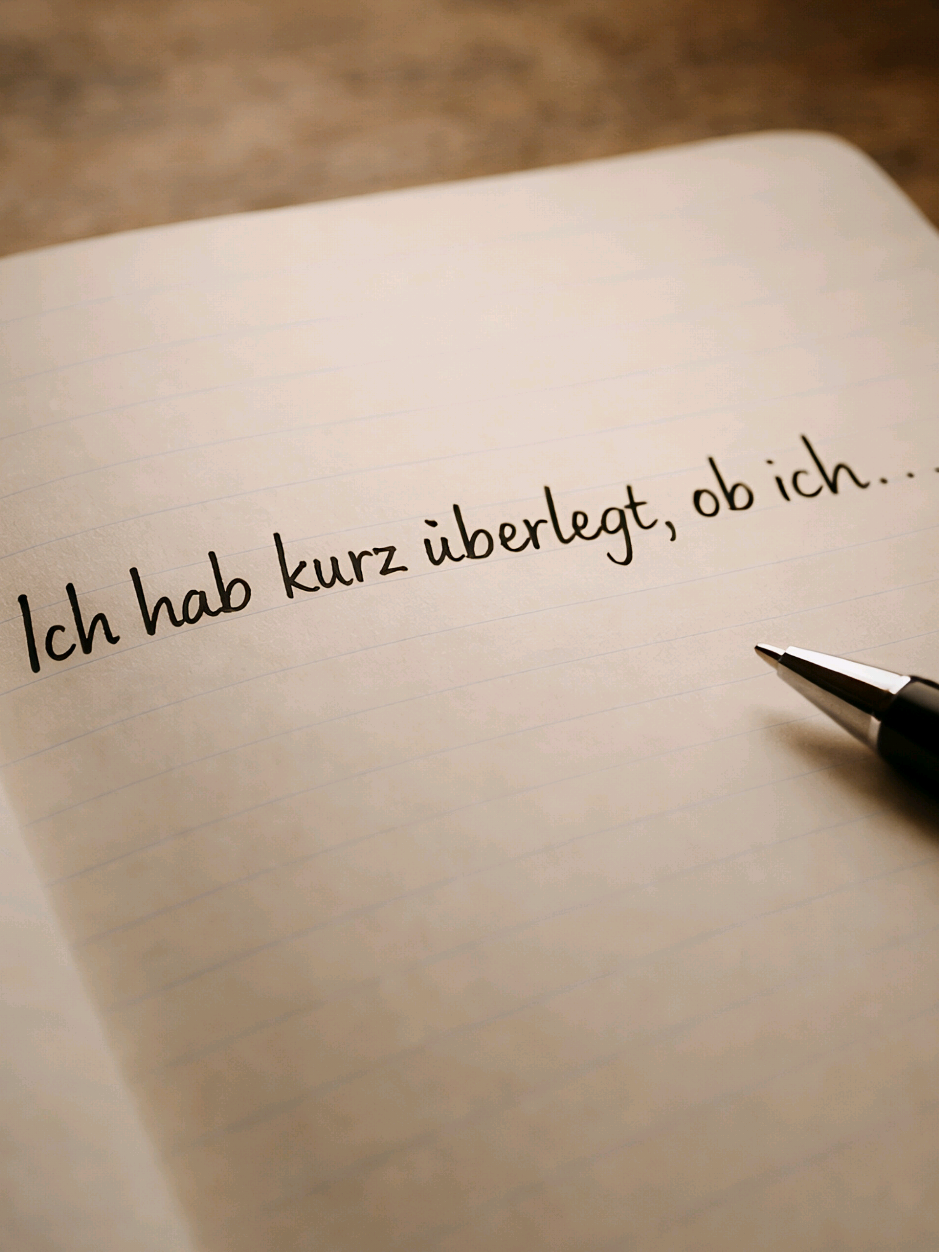 Ich hab kurz überlegt, ob ich...